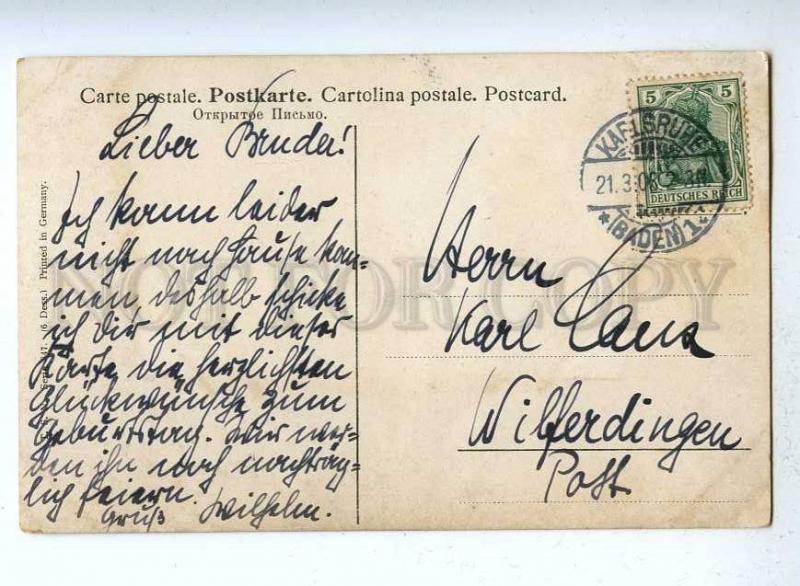 Carte postale. Postkarte. Cartolina postale. Postcard.
Открытое Письмо.
Lieber Bruder!
Ich kann leider
nicht nach Hause kom=
men, deshalb schicke
ich Dir mit dieser
Karte die herzlichsten
Glückwünsche zum
Geburtstag. Wir wer=
den ihn noch nachträg=
lich feiern.
Gruß Wilhelm.
Herrn
Karl
Wilferdingen
Post
5 5
DEUTSCHES REICH
KARLSRUHE
21.3.08
*(BADEN)1.*
(6 Dess.) Printed in Germany.
NOT FOR COPY